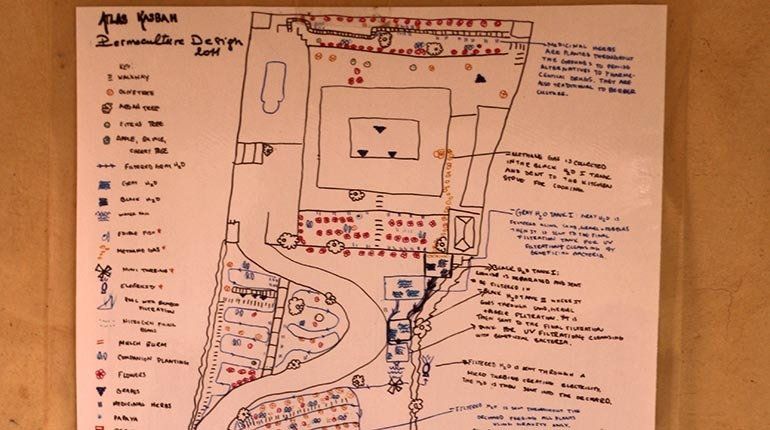 ATLAS KASBAH
Permaculture Design
2011
KEY:
WALKWAY
OLIVE TREE
ARGAN TREE
CITRUS TREE
CHERRY TREE
FILTERED H2O
GRAY H2O
BLACK H2O
EDIBLE FISH
METHANE GAS
MINI TURBINE
FILTRATION
NITROGEN FIXING
MULCH BURM
COMPANION PLANTING
FLOWERS
GRAPES
MEDICINAL HERBS
PAPAYA
MEDICINAL HERBS
ARE PLANTED THROUGHOUT
THE GROUNDS TO PROVIDE
ALTERNATIVES TO PHARME-
CEUTICAL DRUGS. THEY ARE
ALSO TRADITIONAL TO BERBER
CULTURE.
METHANE GAS IS COLLECTED
IN THE BLACK H2O I TANK
AND SENT TO THE KITCHEN
STOVE FOR COOKING.
GRAY H2O TANK I
THEN IT IS SENT TO THE FINAL
FILTRATION TANK FOR UV
FILTRATION/CLEANSING BY
BENEFICIAL BACTERIA.
BLACK H2O TANK I:
IS SEPARATED AND SENT
TO BE FILTERED IN
BLACK H2O TANK II WHERE IT
GOES THROUGH SAND, GRAVEL
FILTRATION. IT IS
THEN SENT TO THE FINAL FILTRATION
TANK FOR UV FILTRATION/CLEANSING
WITH BENEFICIAL BACTERIA.
FILTERED H2O IS SENT THROUGH A
MICRO TURBINE CREATING ELECTRICITY.
THE H2O IS THEN SENT INTO THE ORCHARD.
FILTERED H2O IS SENT THROUGHOUT THE
ORCHARD FEEDING ALL PLANTS
USING GRAVITY ONLY.